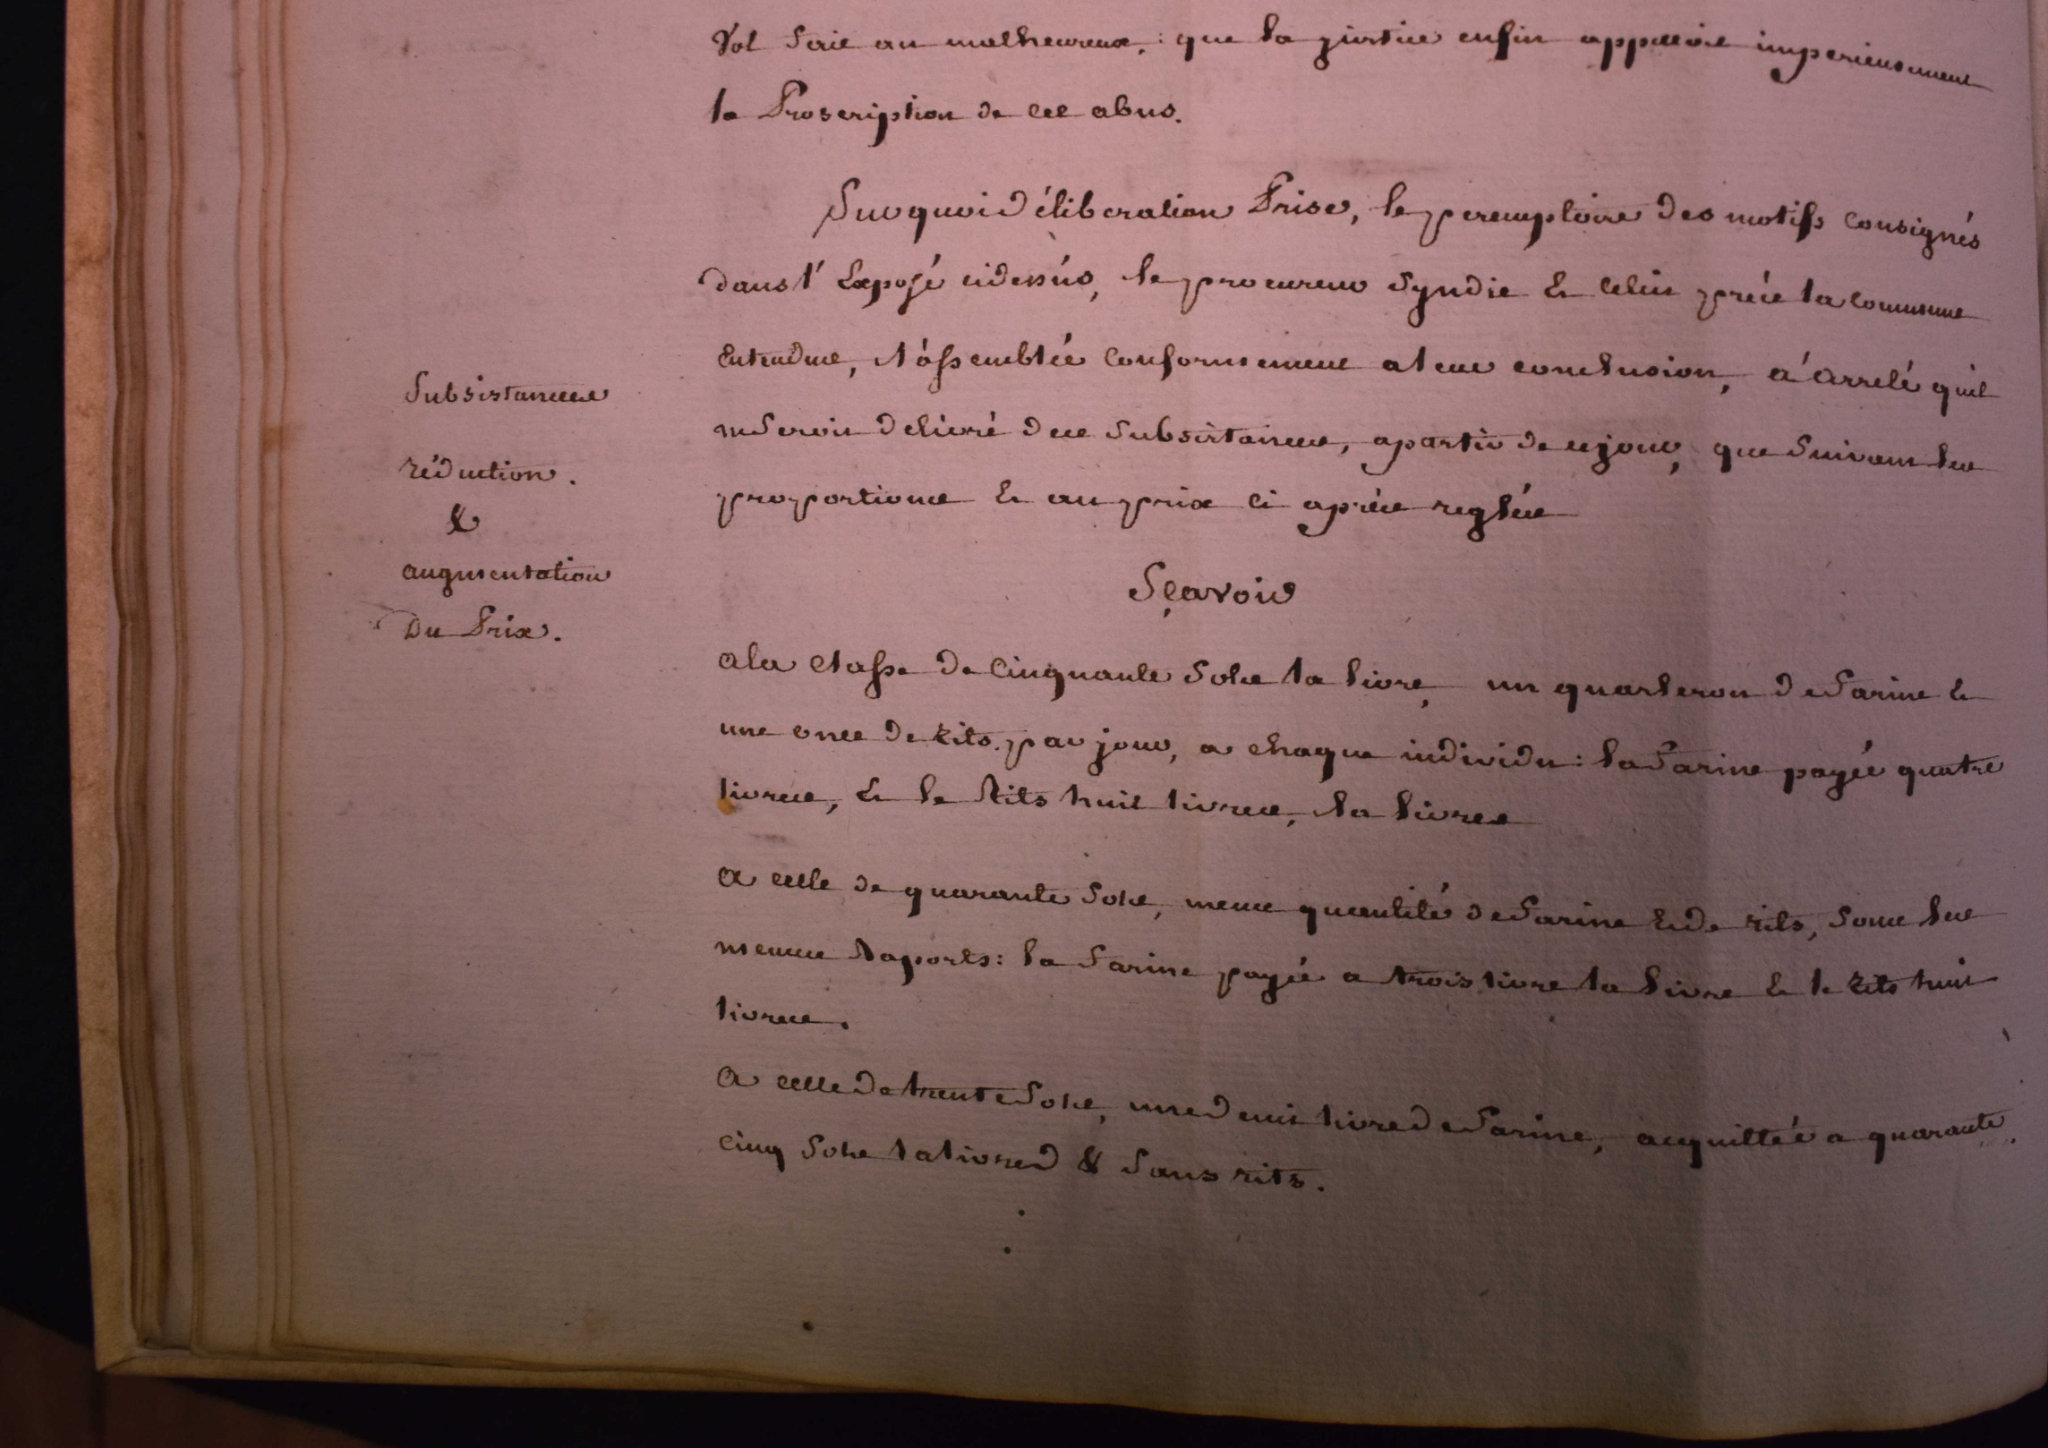 Vol fait au malheureux, : que la justice enfin appelloit imperieusement
la Proscription de cet abus.
Sur quoi déliberation Prise, le peremptoire des motifs Consignés
dans l'Exposé cidessus, le procureur Syndic & celui près la Commune
Entendue, l'assemblée Conformement a leur conclusion, a arrelé qu'il
ne Seroit délivré des Subsistances, apartir de ce jour, que Suivant les
proportions & au prix ci après reglés
Subsistances
réduction.
&
augmentation
Du Prix.
Sçavoir
a la Classe de Cinquante Sols la livre, un quarteron de farine &
une once de Rits par jour, a chaque individu : la farine payée quatre
livres, & le Rits huit livres, la livre
a celle de quarante Sols, meme quantité de farine & de rits, Sous les
memes Raports : la farine payée a trois livre la livre & le Rits huit
livres.
a celle de trente Sols, une demi livre de farine, acquittée a quarante
Cinq Sols la livre & Sans rits.